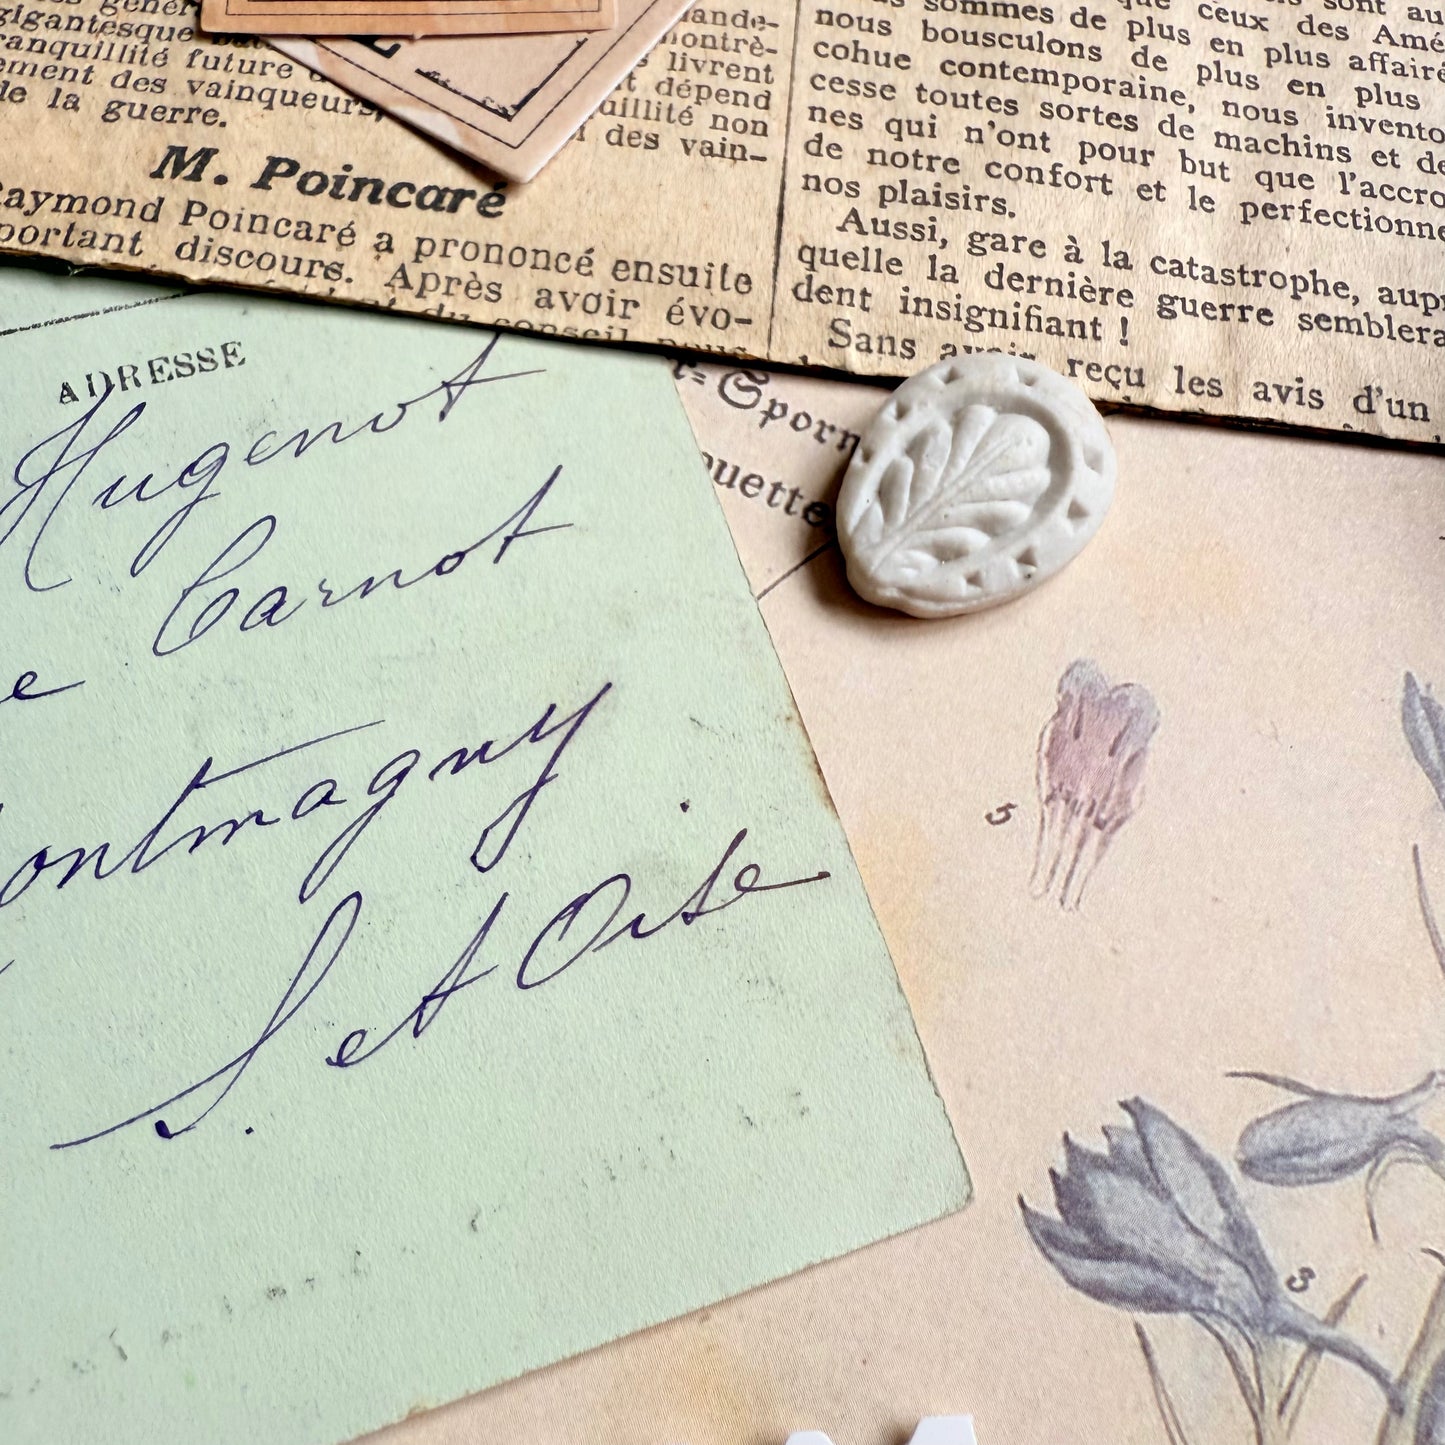 gigantesque
tranquillité future
ement des vainqueurs,
de la guerre.
livrent
dépend
non
des vain-
M. Poincaré
Raymond Poincaré a prononcé ensuite
portant discours. Après avoir évo-
du conseil
sont au
que ceux des Amé
sommes de plus en plus affairé
nous bousculons de plus en plus
cohue contemporaine, nous invento
cesse toutes sortes de machins et de
nes qui n'ont pour but que l'accro
de notre confort et le perfectionne
nos plaisirs.
Aussi, gare à la catastrophe, aupr
quelle la dernière guerre semblera
dent insignifiant !
Sans avoir reçu les avis d'un
ADRESSE
Hugenot
Carnot
ontmagny
S. et Oise
r=Sporn
ouette
5
3